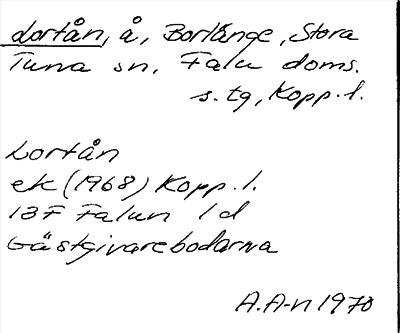 Lortån, å, Borlänge, Stora
Tuna sn, Falu doms.
s. tg, Kopp. l.
Lortån
ek (1968) Kopp. l.
13F Falun 1d
Gästgivarebodarna
A.A-n 1970